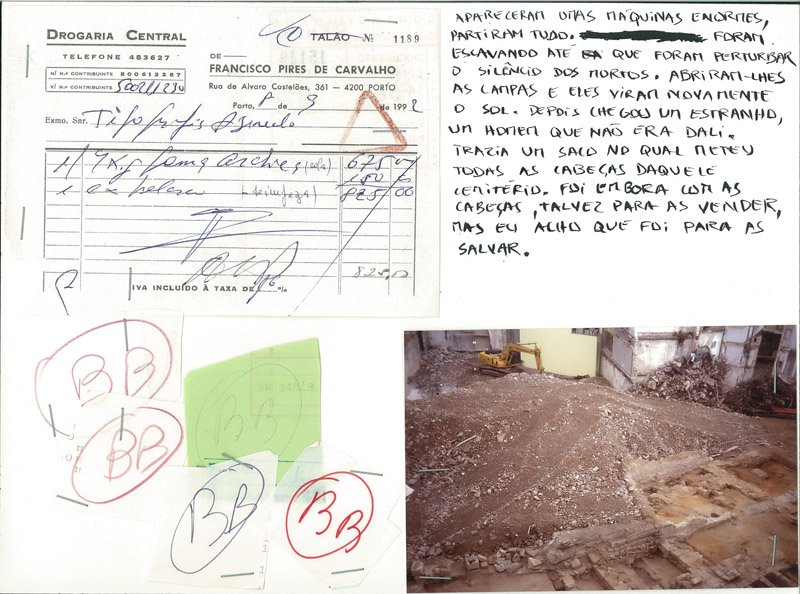 DROGARIA CENTRAL
TELEFONE 483627
N/ N.º CONTRIBUINTE 800613287
V/ N.º CONTRIBUINTE
TALÃO Nº 1189
DE
FRANCISCO PIRES DE CARVALHO
Rua de Alvaro Castelões, 361 — 4200 PORTO
Porto, 8 de 9 de 1992
Exmo. Snr. Tipografia
1/ 4 Kg goma (cola) 675 00
150
(limpeza) 825 00
825,00
IVA INCLUÍDO À TAXA DE %
APARECERAM UMAS MÁQUINAS ENORMES,
PARTIRAM TUDO. FORAM
ESCAVANDO ATÉ QUE FORAM PERTURBAR
O SILÊNCIO DOS MORTOS. ABRIRAM-LHES
AS CAMPAS E ELES VIRAM NOVAMENTE
O SOL. DEPOIS CHEGOU UM ESTRANHO,
UM HOMEM QUE NÃO ERA DALI.
TRAZIA UM SACO NO QUAL METEU
TODAS AS CABEÇAS DAQUELE
CEMITÉRIO. FOI EMBORA COM AS
CABEÇAS, TALVEZ PARA AS VENDER,
MAS EU ACHO QUE FOI PARA AS
SALVAR.
BB
BB
BB
BB
BB